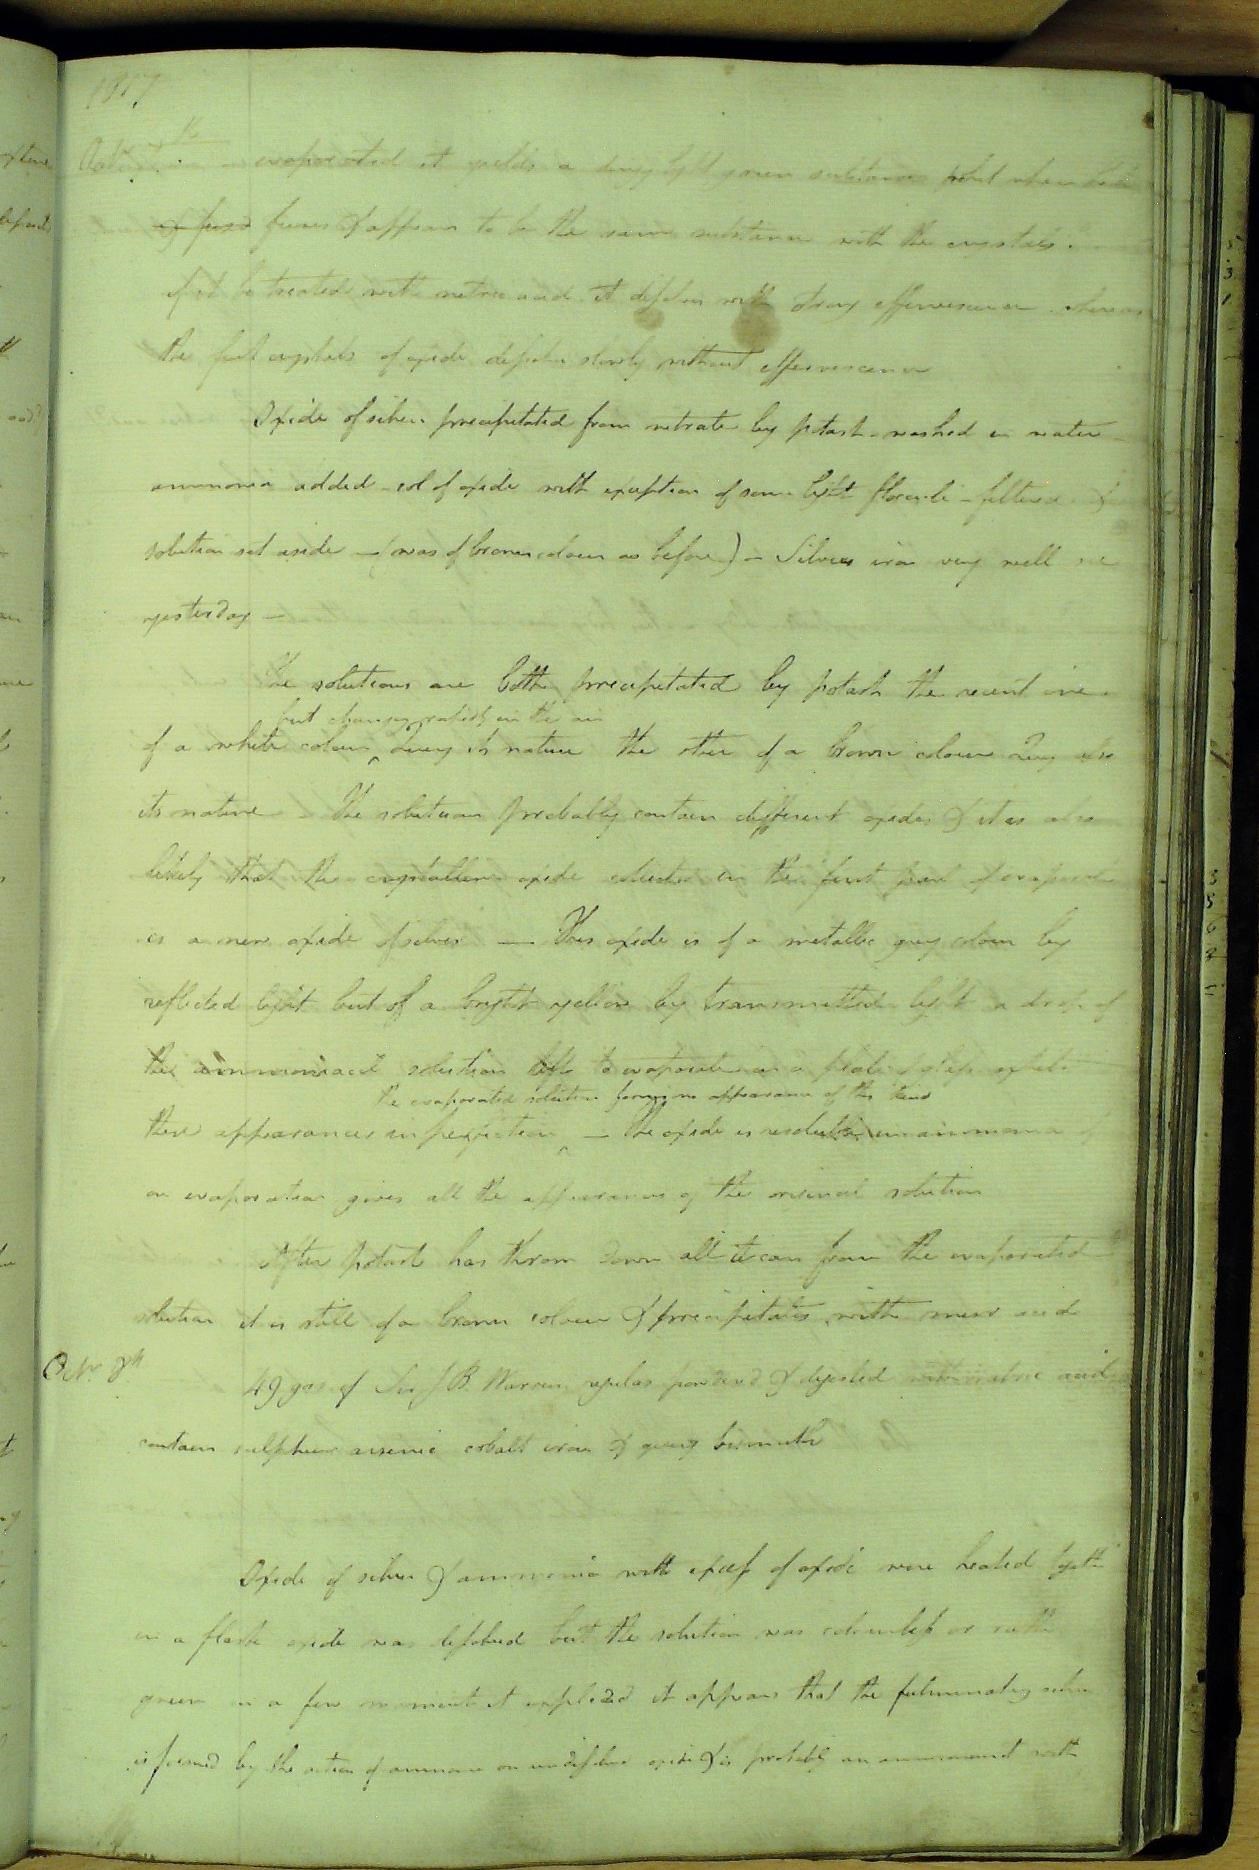 1817
evaporated it yields a dingy light green substance which when heated
& fused fumes & appears to be the same substance with the crystals.
if it be treated with nitric acid it dissolves with strong effervescence whereas
the first crystals of oxide dissolve slowly without effervescence
Oxide of silver precipitated from nitrate by potash washed in water
ammonia added sol of oxide with exception of some light flocculi - filtered &
solution set aside - (was of brown colour as before) -
yesterday -
The solutions are both precipitated by potash the recent one
but changing rapidly in the air
of a white colour Query its nature the other of a brown colour Query also
its nature The solutions probably contain different oxides & it is also
likely that the crystalline oxide collected in the first part of evaporation
is a new oxide of silver — This oxide is of a metallic grey colour by
reflected light but of a bright yellow by transmitted light a drop of
the ammoniacal solution left to evaporate on a plate of glass exhibits
the evaporated solution forming no appearance of this kind
these appearances in perfection — The oxide is resoluble in ammonia &
on evaporation gives all the appearances of the original solution
After potash has thrown down all it can from the evaporated
solution it is still of a brown colour & precipitates with mur acid
Octr. 8th 49 grs of Sir J B Warren regulus powdered & digested with nitric acid
contain sulphur arsenic cobalt iron & query bismuth
Oxide of silver & ammonia with excess of oxide were heated together
in a flask oxide was dissolved but the solution was colourless or rather
green in a few moments it exploded it appears that the fulminating silver
is formed by the action of ammonia on undissolved oxide & is probably an ammoniuret with